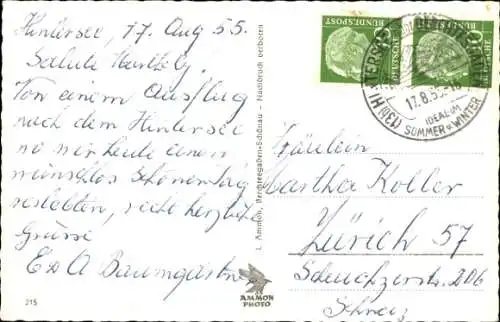 Hintersee, 17. Aug 55.
Salute
Von einem Ausflug
nach dem Hintersee
wo wir heute einen
wunschlos schönen Tag
verlebten, recht herzliche
Grüsse
E & A Baumgartner
215
L. Ammon, Berchtesgaden-Schönau - Nachdruck verboten
AMMON
PHOTO
DEUTSCHE
BUNDESPOST
10
DEUTSCHE
BUNDESPOST
10
(13b) HINTERSEE
17.8.55
IDEAL IM
SOMMER u. WINTER
Fräulein
Martha Koller
Zürich 57
Scheuchzerstr. 206
Schweiz